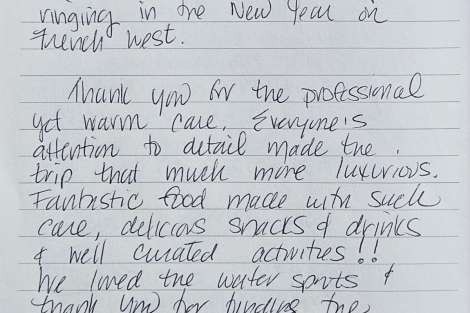 ringing in the New Year on
French West.
Thank you for the professional
yet warm care. Everyone's
attention to detail made the
trip that much more luxurious.
Fantastic food made with such
care, delicious snacks & drinks
& well curated activities!!
We loved the water sports &
thank you for finding the